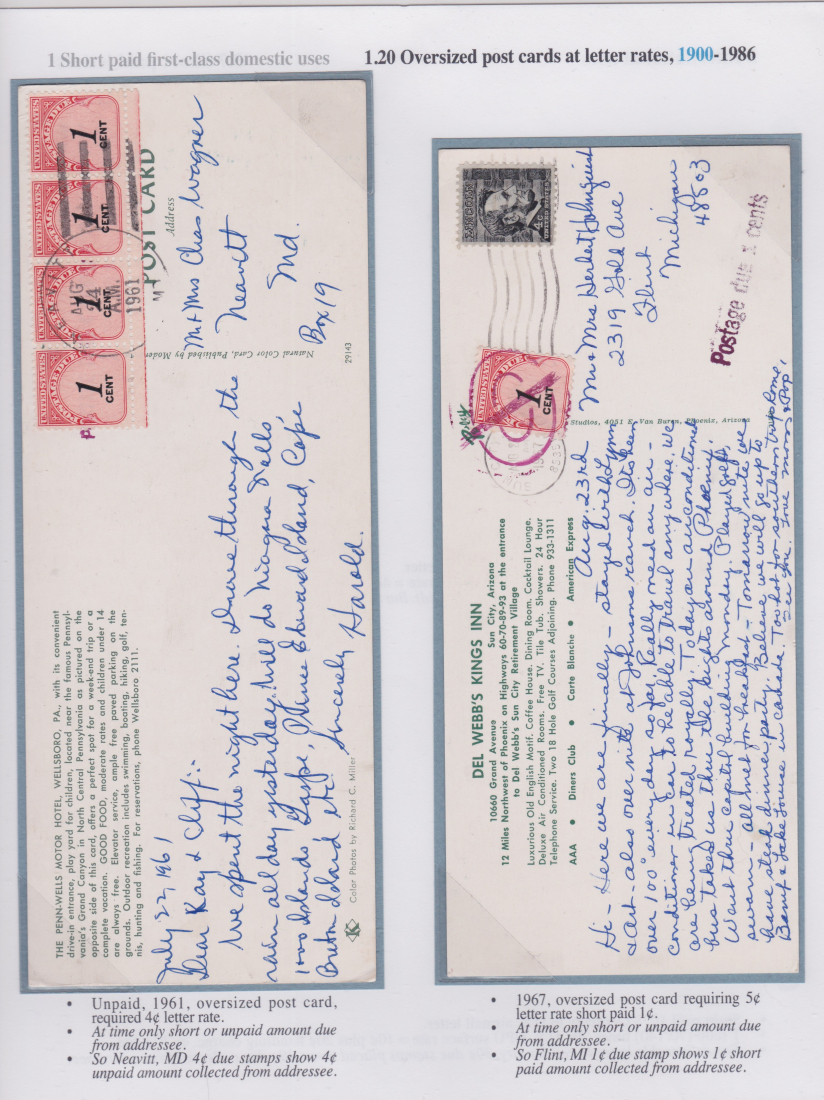 1 Short paid first-class domestic uses
1.20 Oversized post cards at letter rates, 1900-1986
UNITED STATES
POSTAGE DUE
1
CENT
UNITED STATES
POSTAGE DUE
1
CENT
UNITED STATES
POSTAGE DUE
1
CENT
UNITED STATES
POSTAGE DUE
1
CENT
AUG
24
A.M.
1961
POST CARD
Address
Mr + Mrs Chas Wagner
Neavitt
Md.
Box 19
Natural Color Card, Published by
29143
THE PENN-WELLS MOTOR HOTEL, WELLSBORO, PA., with its convenient
drive-in entrance, play yard for children, located near the famous Pennsyl-
vania's Grand Canyon in North Central Pennsylvania as pictured on the
opposite side of this card, offers a perfect spot for a week-end trip or a
complete vacation. GOOD FOOD, moderate rates and children under 14
are always free. Elevator service, ample free paved parking on the
grounds. Outdoor recreation includes swimming, boating, hiking, golf, ten-
nis, hunting and fishing. For reservations, phone Wellsboro 2111.
July 22, 1961
Dear Kay & Cliff:-
We spent the night here Drove through the
rain all day yesterday. Will do Niagra Falls,
1000 Islands Gaspe, Prince Edward Island, Cape
Breton Island etc. Sincerely Harold.
Color Photos by Richard C. Miller
LINCOLN
4c
UNITED STATES
UNITED STATES
POSTAGE DUE
1
CENT
Mr & Mrs Herbert Holmquist
2319 Gold Ave
Flint
Michigan
48503
Postage due cents
Studios, 4051 E. Van Buren, Phoenix, Arizona
DEL WEBB'S KINGS INN
10660 Grand Avenue Sun City, Arizona
12 Miles Northwest of Phoenix on Highways 60-70-89-93 at the entrance
to Del Webb's Sun City Retirement Village
Luxurious Old English Motif. Coffee House. Dining Room. Cocktail Lounge.
Deluxe Air Conditioned Rooms. Free TV. Tile Tub. Showers. 24 Hour
Telephone Service. Two 18 Hole Golf Courses Adjoining. Phone 933-1311
AAA • Diners Club • Carte Blanche • American Express
Aug. 23rd
Hi - Here we are finally - stayed with Lynn
& Art - also over nite at Johnsons ranch. It's been
over 100° every day so far. Really need an air -
conditioner in car to be able to travel anywhere. We
are being treated royally. Today our air conditioned
bus takes us thru the sights around Phoenix,
Went thru capitol building Monday. Played golf,
swam - all met for breakfast - Tomorrow nite we
have steak dinner party. Believe we will go up to
Banff & Lake Louise in Canada. Too hot for southern trip home.
See you. Love Mom & Pop.
• Unpaid, 1961, oversized post card,
required 4¢ letter rate.
• At time only short or unpaid amount due
from addressee.
• So Neavitt, MD 4¢ due stamps show 4¢
unpaid amount collected from addressee.
• 1967, oversized post card requiring 5¢
letter rate short paid 1¢.
• At time only short or unpaid amount due
from addressee.
• So Flint, MI 1¢ due stamp shows 1¢ short
paid amount collected from addressee.